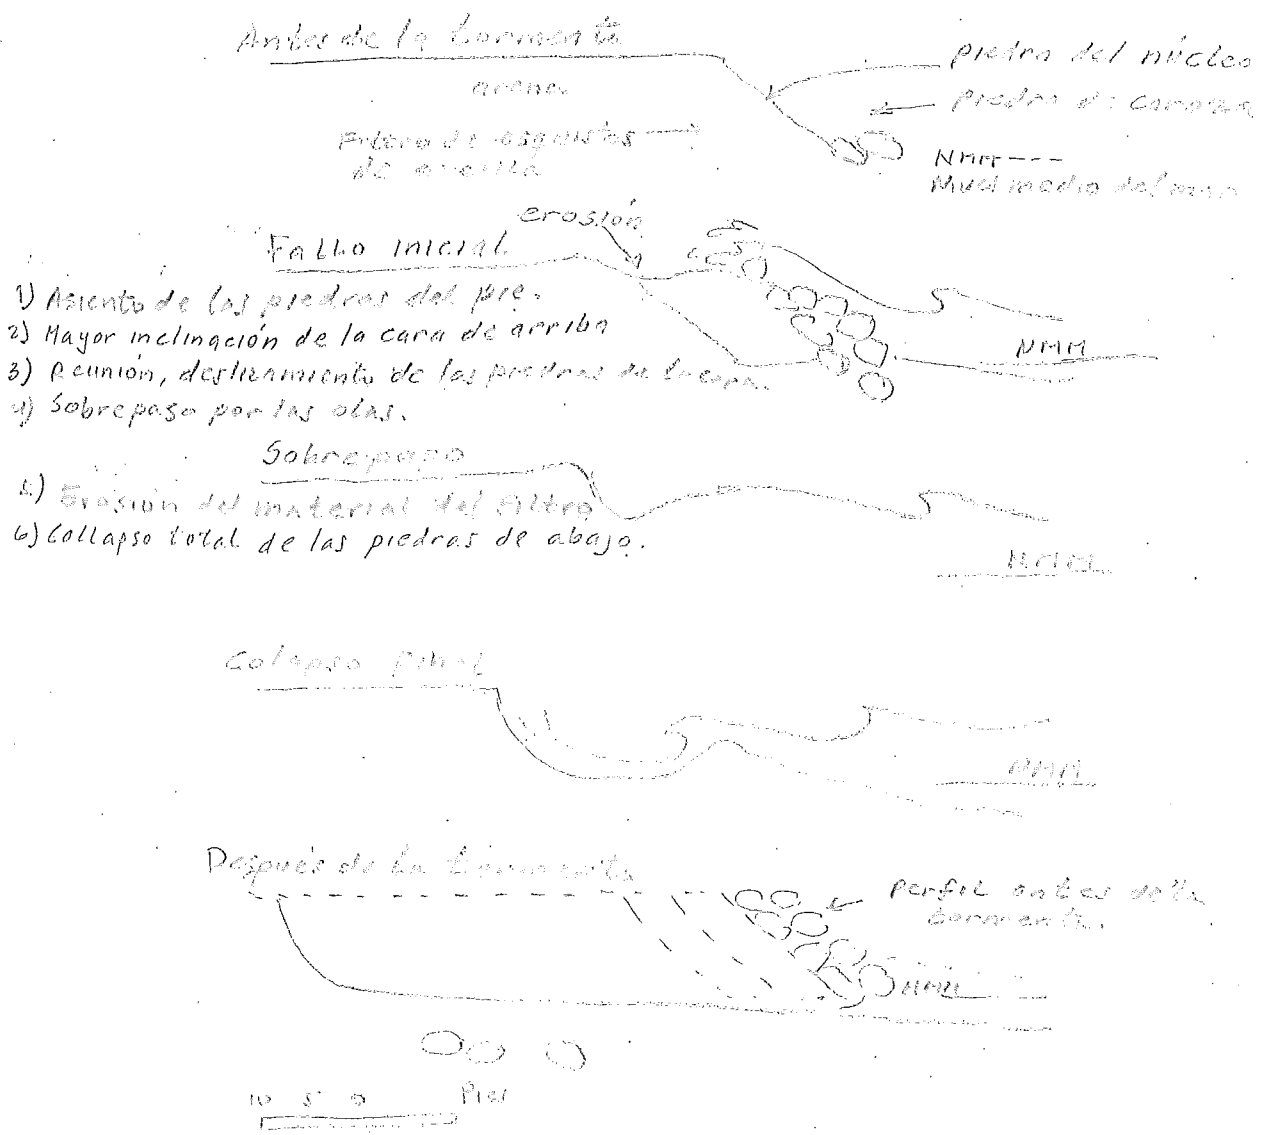 Antes de la tormenta
piedra del núcleo
arena
piedra de coraza
Filtro de esquistos
de arcilla
NMM---
Nivel medio del mar
erosión
Fallo inicial
1) Asiento de las piedras del pie.
2) Mayor inclinación de la cara de arriba
3) Reunión, deslizamiento de las piedras de la capa.
4) Sobrepaso por las olas.
NMM
Sobrepaso
5) Erosión del material del Filtro
6) Collapso total de las piedras de abajo.
NMM
Colapso final
NMM
Después de la tormenta
Perfil antes de la
tormenta.
NMM
10 5 0 Pies